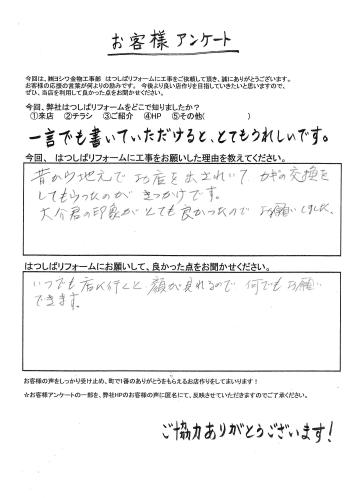 お客様アンケート
今回は、㈱ヨシワ金物工事部 はつしばリフォームに工事をご依頼して頂き、誠にありがとうございます。
お客様の応援の言葉が何よりの励みです。 今後より良い店作りを目指していきたいと思いますので、
ぜひ、当店を利用して良かった点をお聞かせください。
今回、弊社はつしばリフォームをどこで知りましたか？
①来店 ②チラシ ③ご紹介 ④HP ⑤その他( )
一言でも書いていただけると、とてもうれしいです。
今回、 はつしばリフォームに工事をお願いした理由を教えてください。
昔から地元でお店を出されいて カギの交換を
してもらったのが きっかけです。
大介君の印象がとても良かったので お願いしました。
はつしばリフォームにお願いして、良かった点をお聞かせください。
いつでも店に行くと 顔が見れるので 何でもお願い
できます。
お客様の声をしっかり受け止め、町で1番のありがとうをもらえるお店作りをしてまいります！
☆お客様アンケートの一部を、弊社HPのお客様の声に匿名にて、反映させていただきますのでご了承ください。
ご協力ありがとうございます！